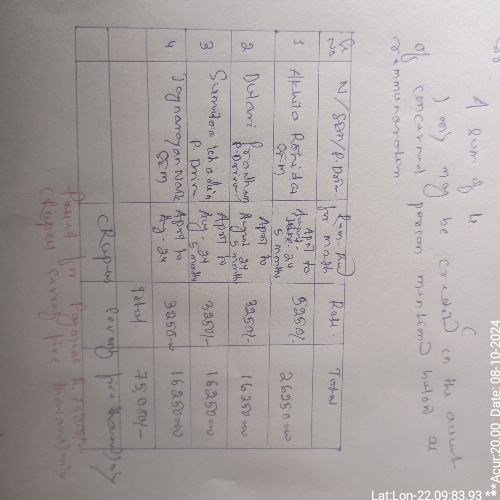 A sum of Rs (
) only may be credited in the account
of concerned person mentioned below as
remuneration.
Sl No N/GEN/P.Driv Rem. for month Rate Total
1 GPM April to August-24 5 months 5250/- 26250=00
2 Dulari Pradhan P.Driver April to August 24 5 months 3250/- 16250=00
3. P. Driver April to Aug-24 5 months 3250/- 16250=00
4 Jaynarayan Naik GPM April to Aug-24 3250=00 16250=00
Total 75000/-
Rupees Seventy five thousand only
Passed for Payment Rs 75000/-
Rupees Seventy five thousand only
Lat:Lon-22.09:83.93
**Acur:20.00 Date:08-10-2024